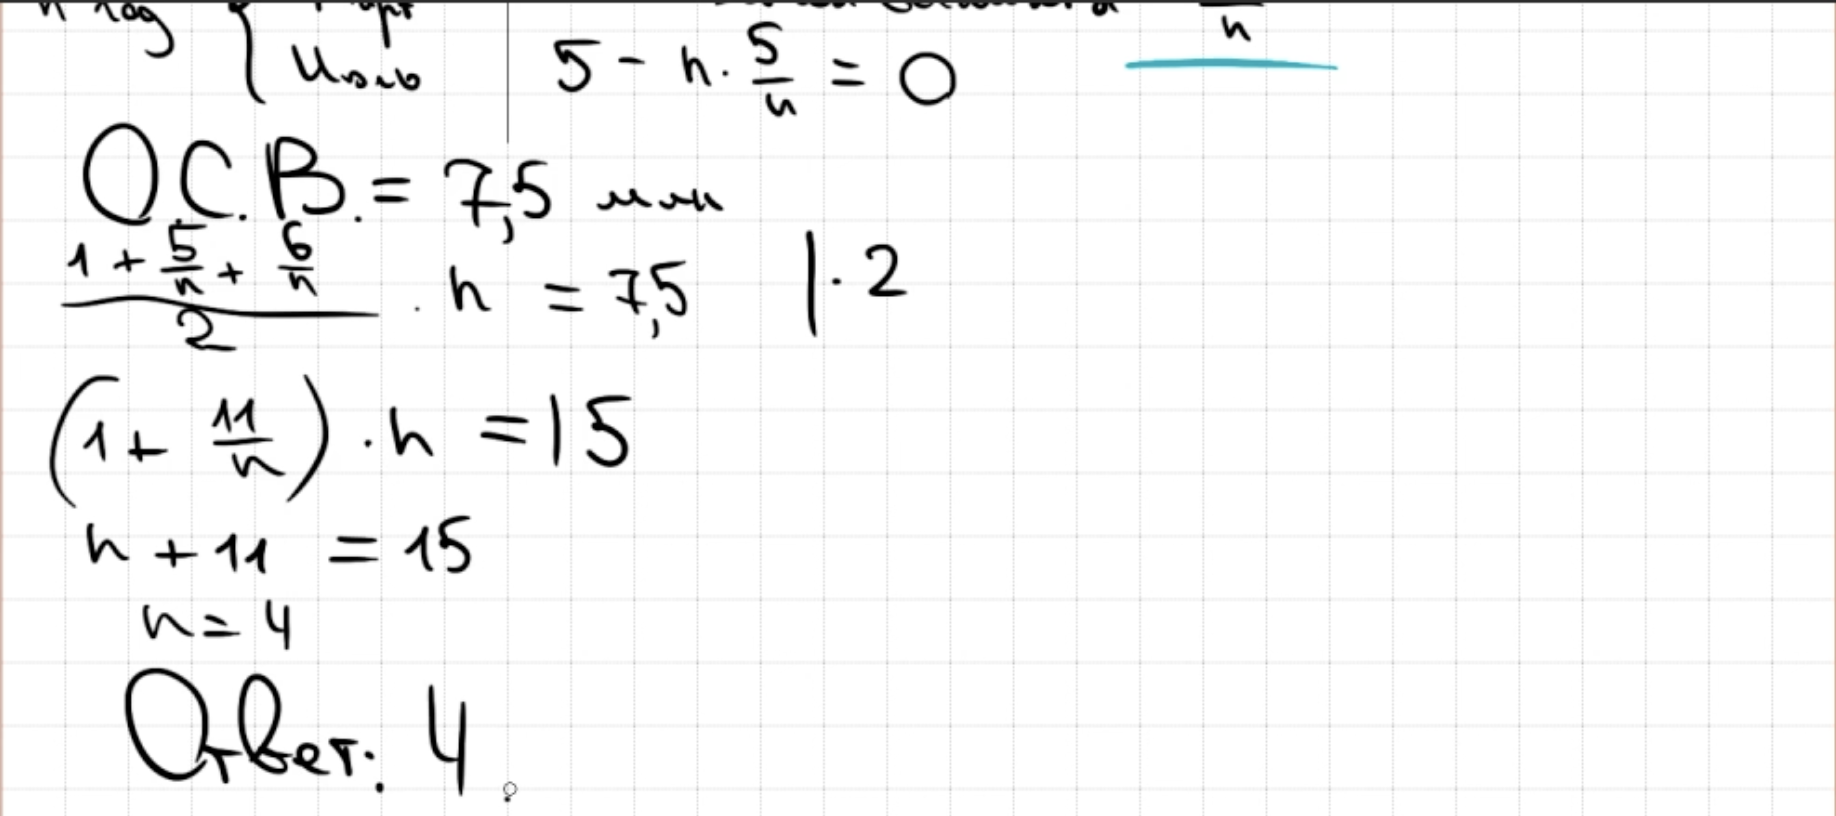 n год { март
июль
5 - n · 5/n = 0
n
О.С.В. = 7,5 млн
(1 + 5/n + 6/n)/2 · n = 7,5 | · 2
(1 + 11/n) · n = 15
n + 11 = 15
n = 4
Ответ: 4.